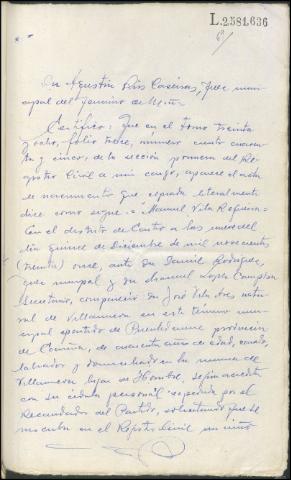 L.2581.636
Don Agustín Ríos Caseiras, Juez muni-
cipal del Termino de Miño
Certifico: Que en el tomo treinta
y ocho, folio trece, número ciento cuaren-
ta y cinco, de la sección primera del Re-
gistro Civil a mi cargo, aparece el acta
de nacimiento que copiada literalmente
dice como sigue: = "Manuel Vila Roqueiro =
En el distrito de Castro a las nueve del
día quince de Diciembre de mil novecientos
once, ante Don Daniel Rodríguez,
Juez municipal y Don Manuel López
Secretario, compareció Don José Vila natu-
ral de Villamateo en este término muni-
cipal apartido de Puentedeume provincia
de Coruña, de cuarenta años de edad, casado,
labrador y domiciliado en la misma de
Villamateo lugar de Hombre, según acredita
con su cédula personal expedida por el
Recaudador del Partido, solicitando que se
inscriba en el Registro Civil un niño